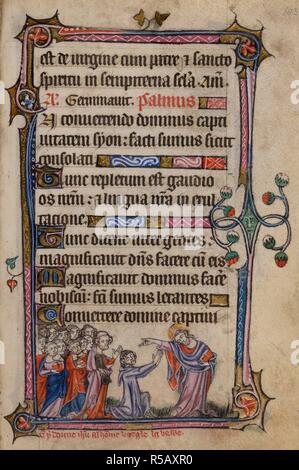 est de virgine cum patre & sancto
spiritu in sempiterna sela. Am.
Germinavit. Psalmus
In convertendo dominus capti
vitatem syon: facti sumus sicut
consolati
Tunc repletum est gaudio
os nrm: & lingua nra in exul
tatione.
Tunc dicent inter gentes:
magnificavit dns facere cum eis
Magnificavit dominus facere
nobiscum: fci sumus letantes.
Convertere domine captivi
alamy
Image ID: R5AXR0
www.alamy.com